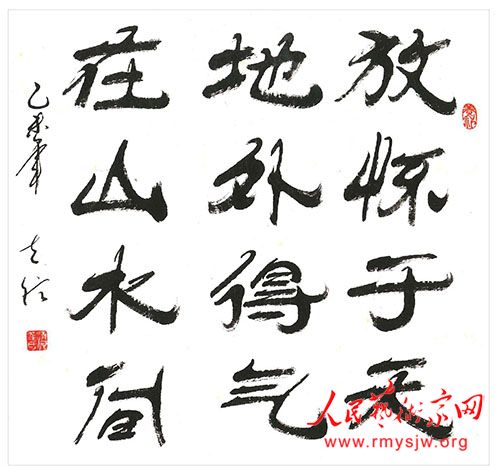 放怀于天
地外得气
在山水间
乙未
人民藝術家网
www.rmysjw.org